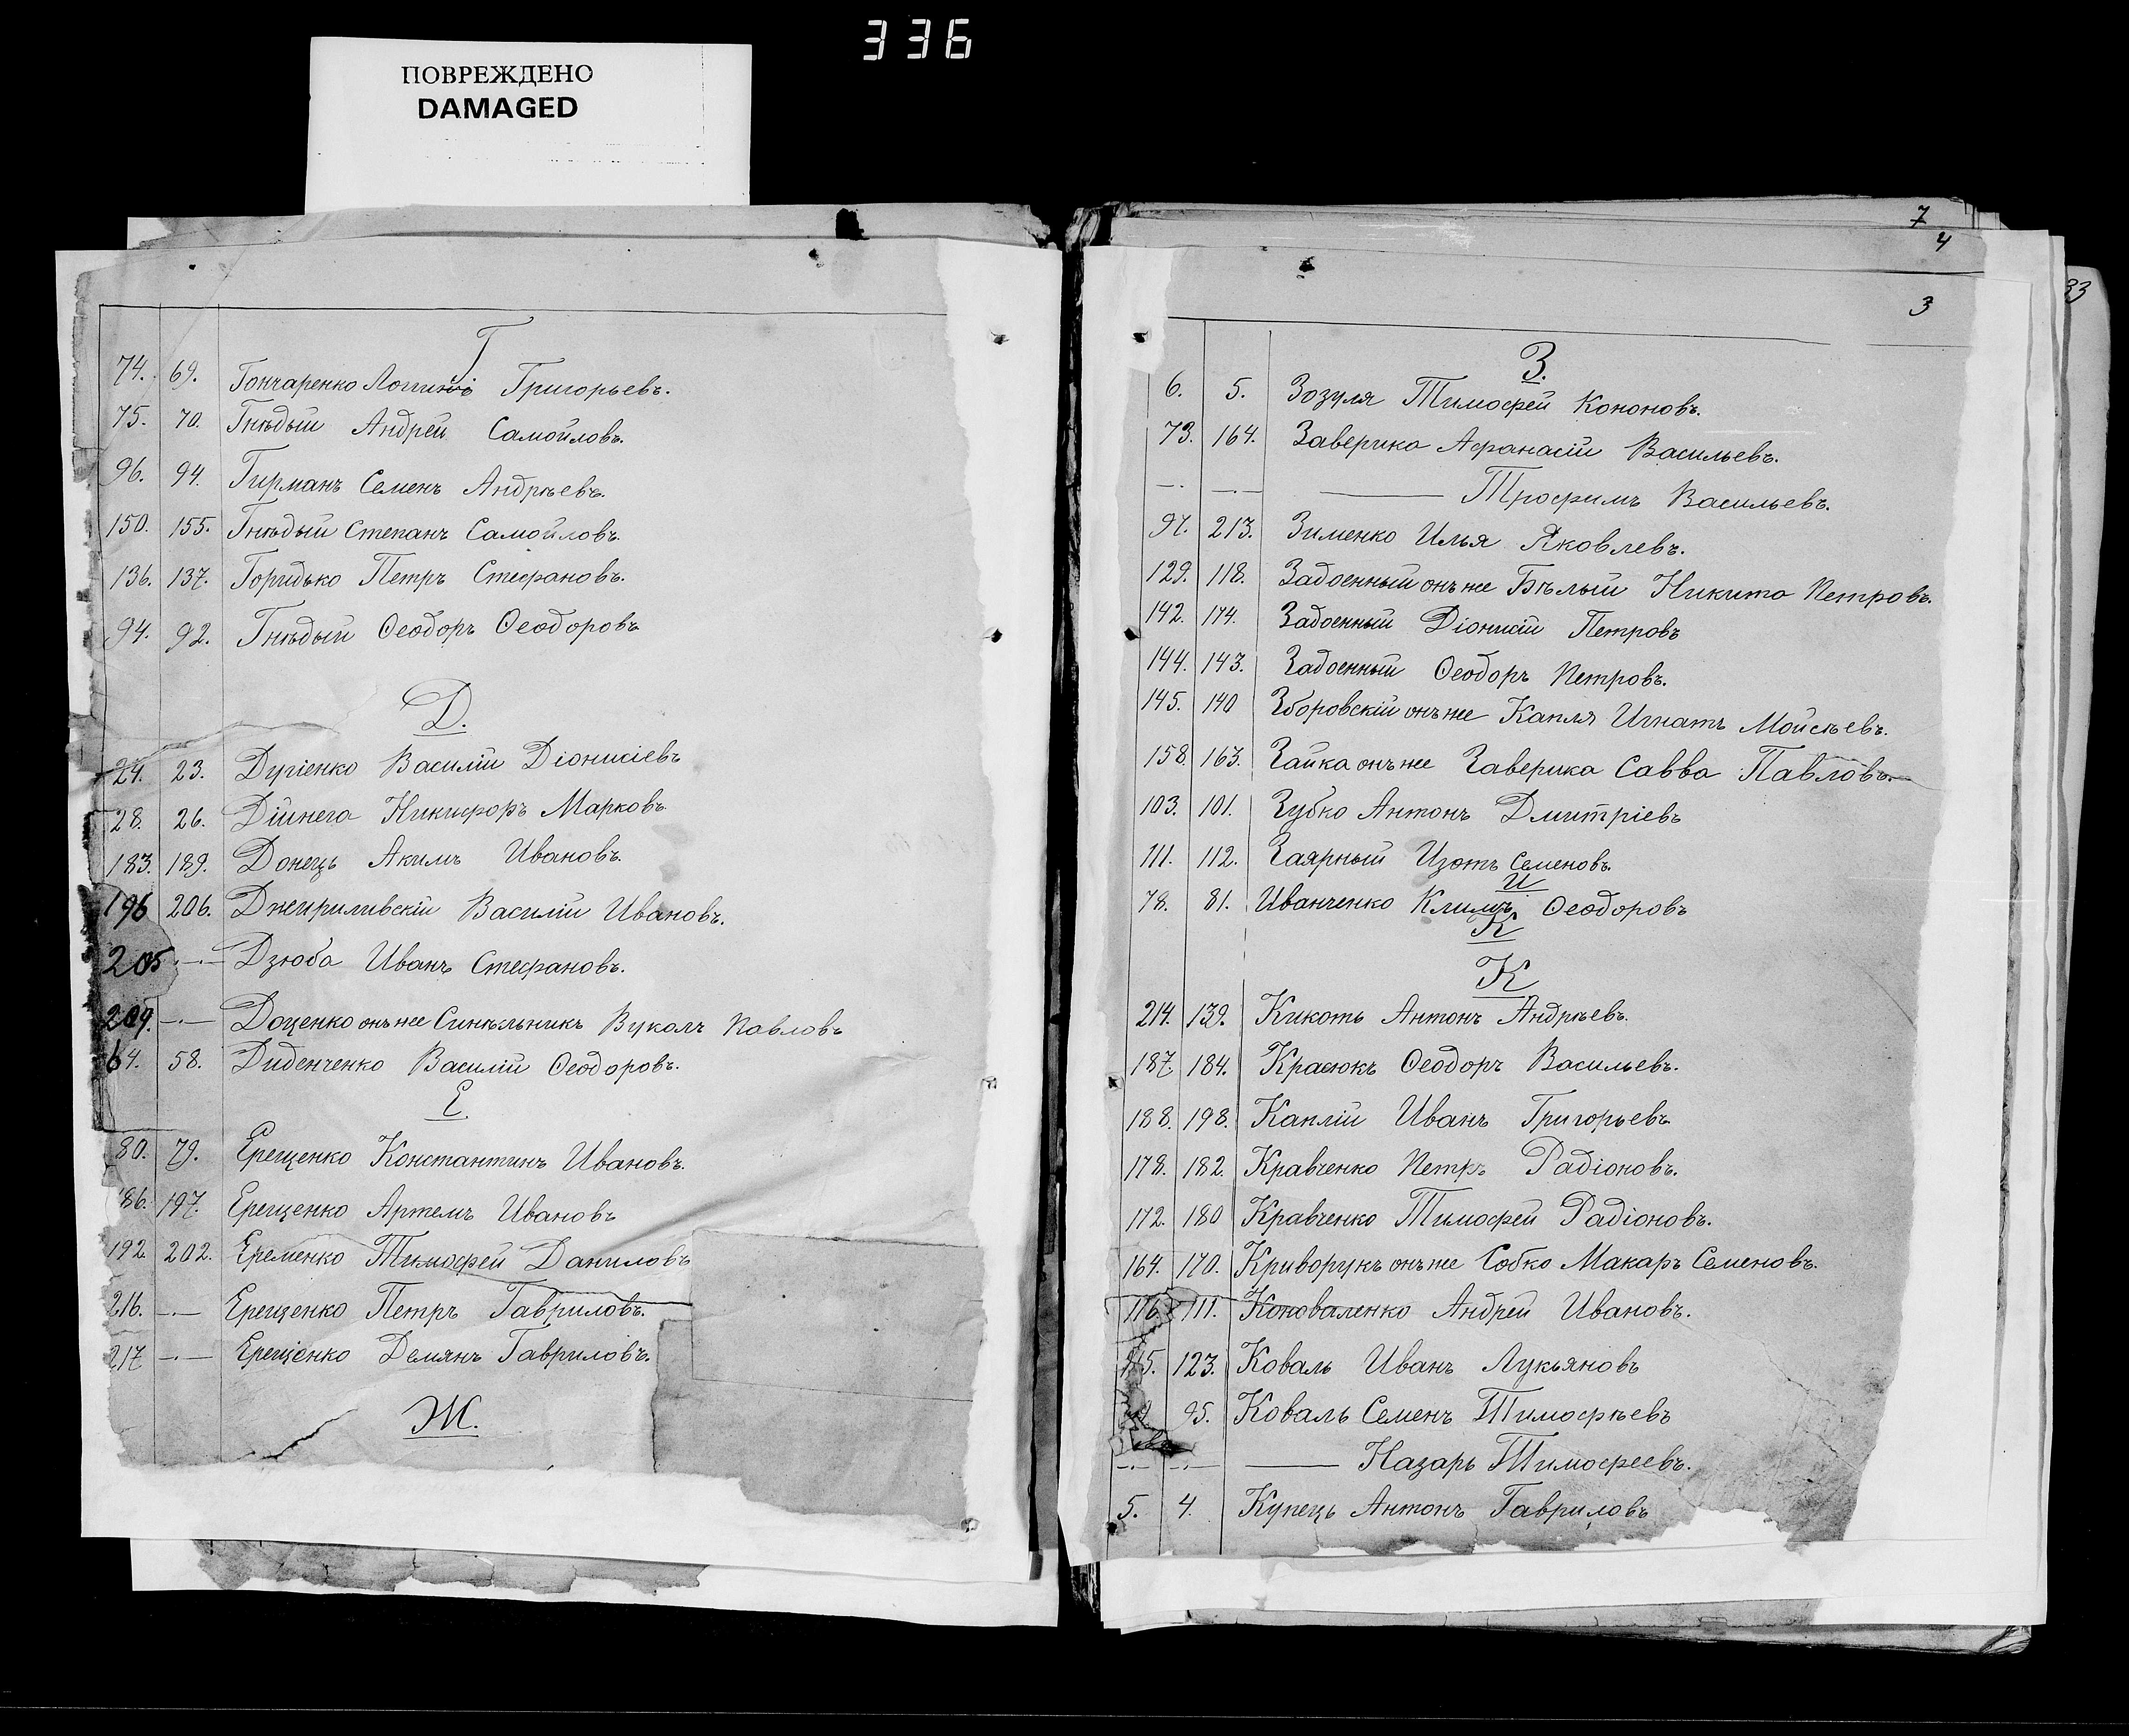 336
ПОВРЕЖДЕНО
DAMAGED
Г
74. 69. Гончаренко Логгинъ Григорьевъ.
75. 70. Гнѣдый Андрей Самойловъ.
96. 94. Гирманъ Семенъ Андрѣевъ.
150. 155. Гнѣдый Степанъ Самойловъ.
136. 137. Горидько Петръ Стефановъ.
94. 92. Гнѣдый Ѳеодоръ Ѳеодоровъ
Д.
24. 23. Дугіенко Василій Діонисіевъ
28. 26. Дійнега Никифоръ Марковъ
183. 189. Донецъ Акимъ Ивановъ.
196 206. Джигриливскій Василій Ивановъ.
205 —·— Дзюба Иванъ Стефановъ.
209. —·— Доценко онъ же Синѣльникъ Вуколъ Павловъ
64. 58. Диденченко Василій Ѳеодоровъ.
Е.
80. 79. Ерещенко Константинъ Ивановъ.
186. 197. Ерещенко Артемъ Ивановъ
192 202. Еременко Тимофей Даниловъ
216. —·— Ерещенко Петръ Гавриловъ.
217 —·— Ерещенко Демянъ Гавриловъ.
Ж.
7
4
33
3
З.
6. 5. Зозуля Тимофей Кононовъ.
73. 164. Заверика Афанасій Васильевъ.
—· —·— —— Трофимъ Васильевъ.
97. 213. Зименко Илья Яковлевъ.
129. 118. Задоенный онъ же Бѣлый Никита Петровъ.
142. 174. Задоенный Діонисій Петровъ
144. 143. Задоенный Ѳеодоръ Петровъ.
145. 140 Зборовскій онъ же Капля Игнатъ Мойсѣевъ.
158. 163. Зайка онъ же Заверика Савва Павловъ.
103. 101. Зубко Антонъ Дмитріевъ
111. 112. Заярный Изотъ Семеновъ.
И
78. 81. Иванченко Климъ Ѳеодоровъ
К
К
214. 139. Кикоть Антонъ Андрѣевъ.
187. 184. Красюкъ Ѳеодоръ Васильевъ.
188. 198. Каплій Иванъ Григорьевъ
178. 182. Кравченко Петръ Радіоновъ.
172. 180 Кравченко Тимофей Радіоновъ.
164. 170. Криворукъ онъ же Собко Макаръ Семеновъ.
116. 111. Коноваленко Андрей Ивановъ.
123. Коваль Иванъ Лукьяновъ
95. Коваль Семенъ Тимофѣевъ
—·— —·— —— Назаръ Тимофеевъ.
5. 4. Купецъ Антонъ Гавриловъ